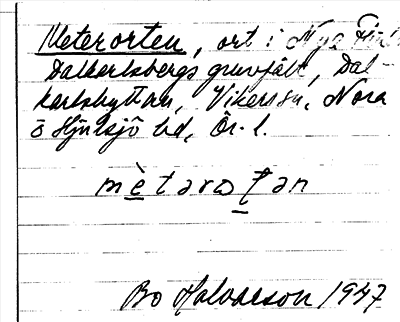 Meterorten, ort i Nya
Dalkarlsbergs gruvfält, Dal-
karlshyttan, Vikerssn, Nora
ö Hjulsjö bd, Ör. l.
mètəroṭən
Bo Halvarson 1947